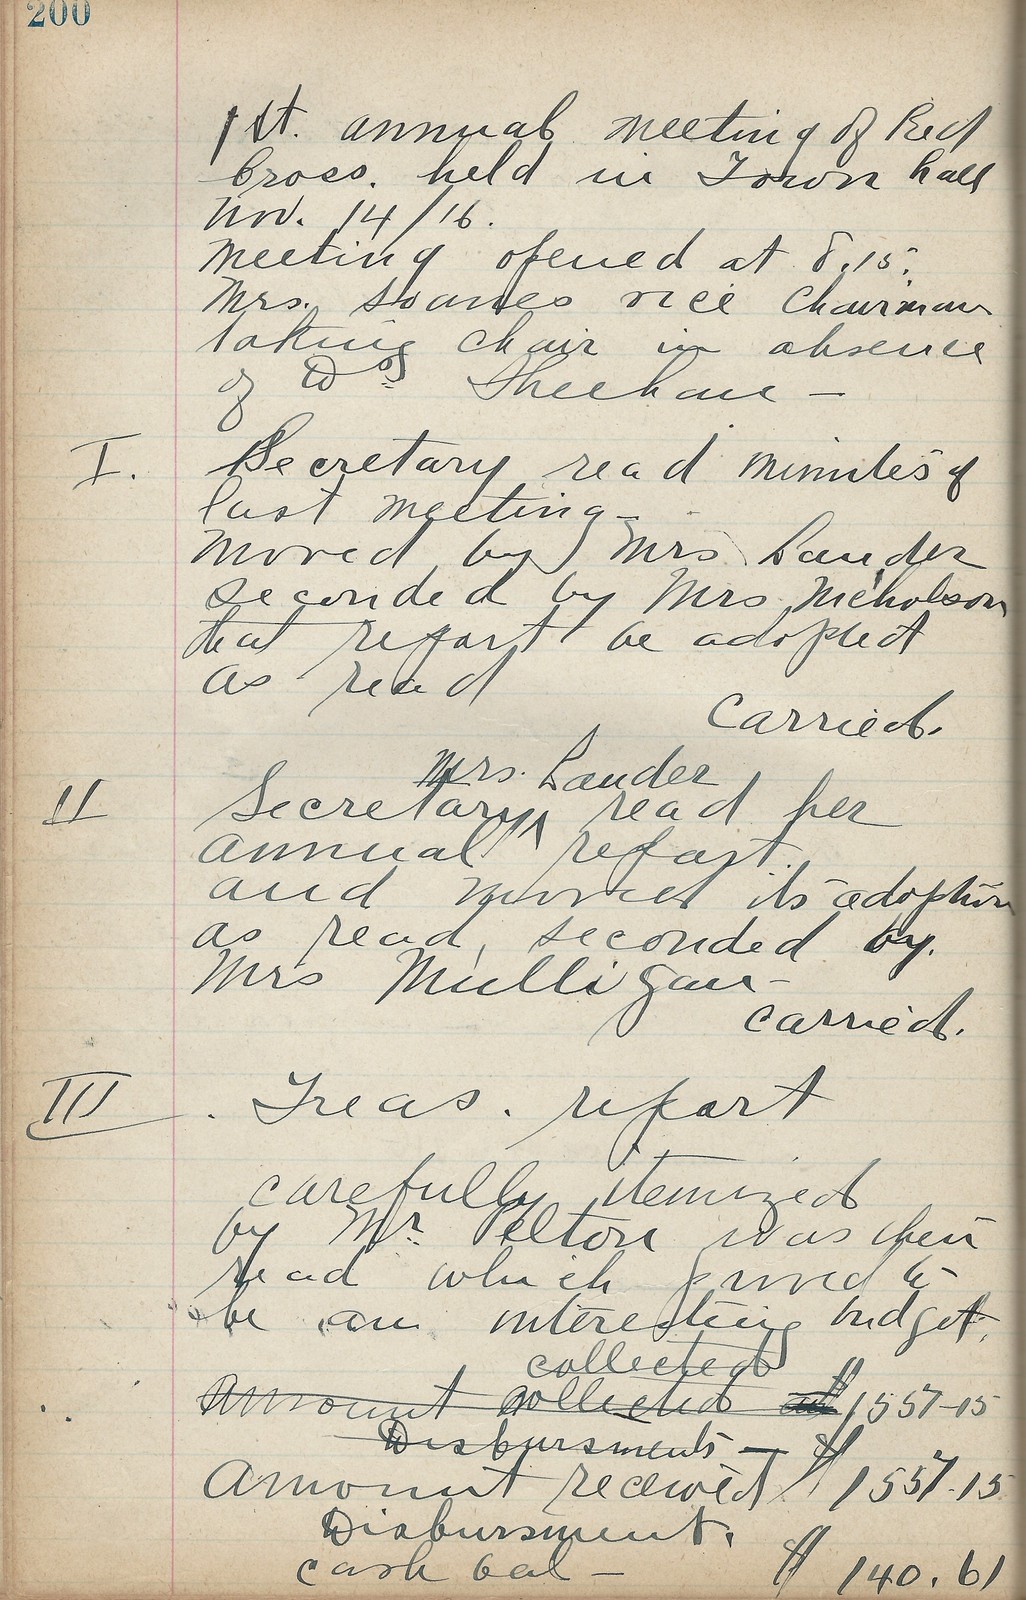 200
1st. annual meeting of Red
Cross. held in Town hall
Nov. 14/16.
Meeting opened at 8.15.
Mrs. Soanes vice Chairman
taking chair in absence
of Sheehan —
I. Secretary read minutes of
last meeting —
Moved by Mrs Lauder
seconded by Mrs. Nicholson
that report be adopted
as read
Carried.
Mrs. Lauder
II Secretary ^ read her
annual report.
and moved its adoption
as read, seconded by.
Mrs Mulligan —
carried.
III . Treas. report
carefully itemized
by Mr. Pelton was then
read which proved to
be an interesting budget.
collected
Amount collected $1557-15
Disbursments — $
Amount received $1557.15
Disbursment.
cash bal — $ 140.61